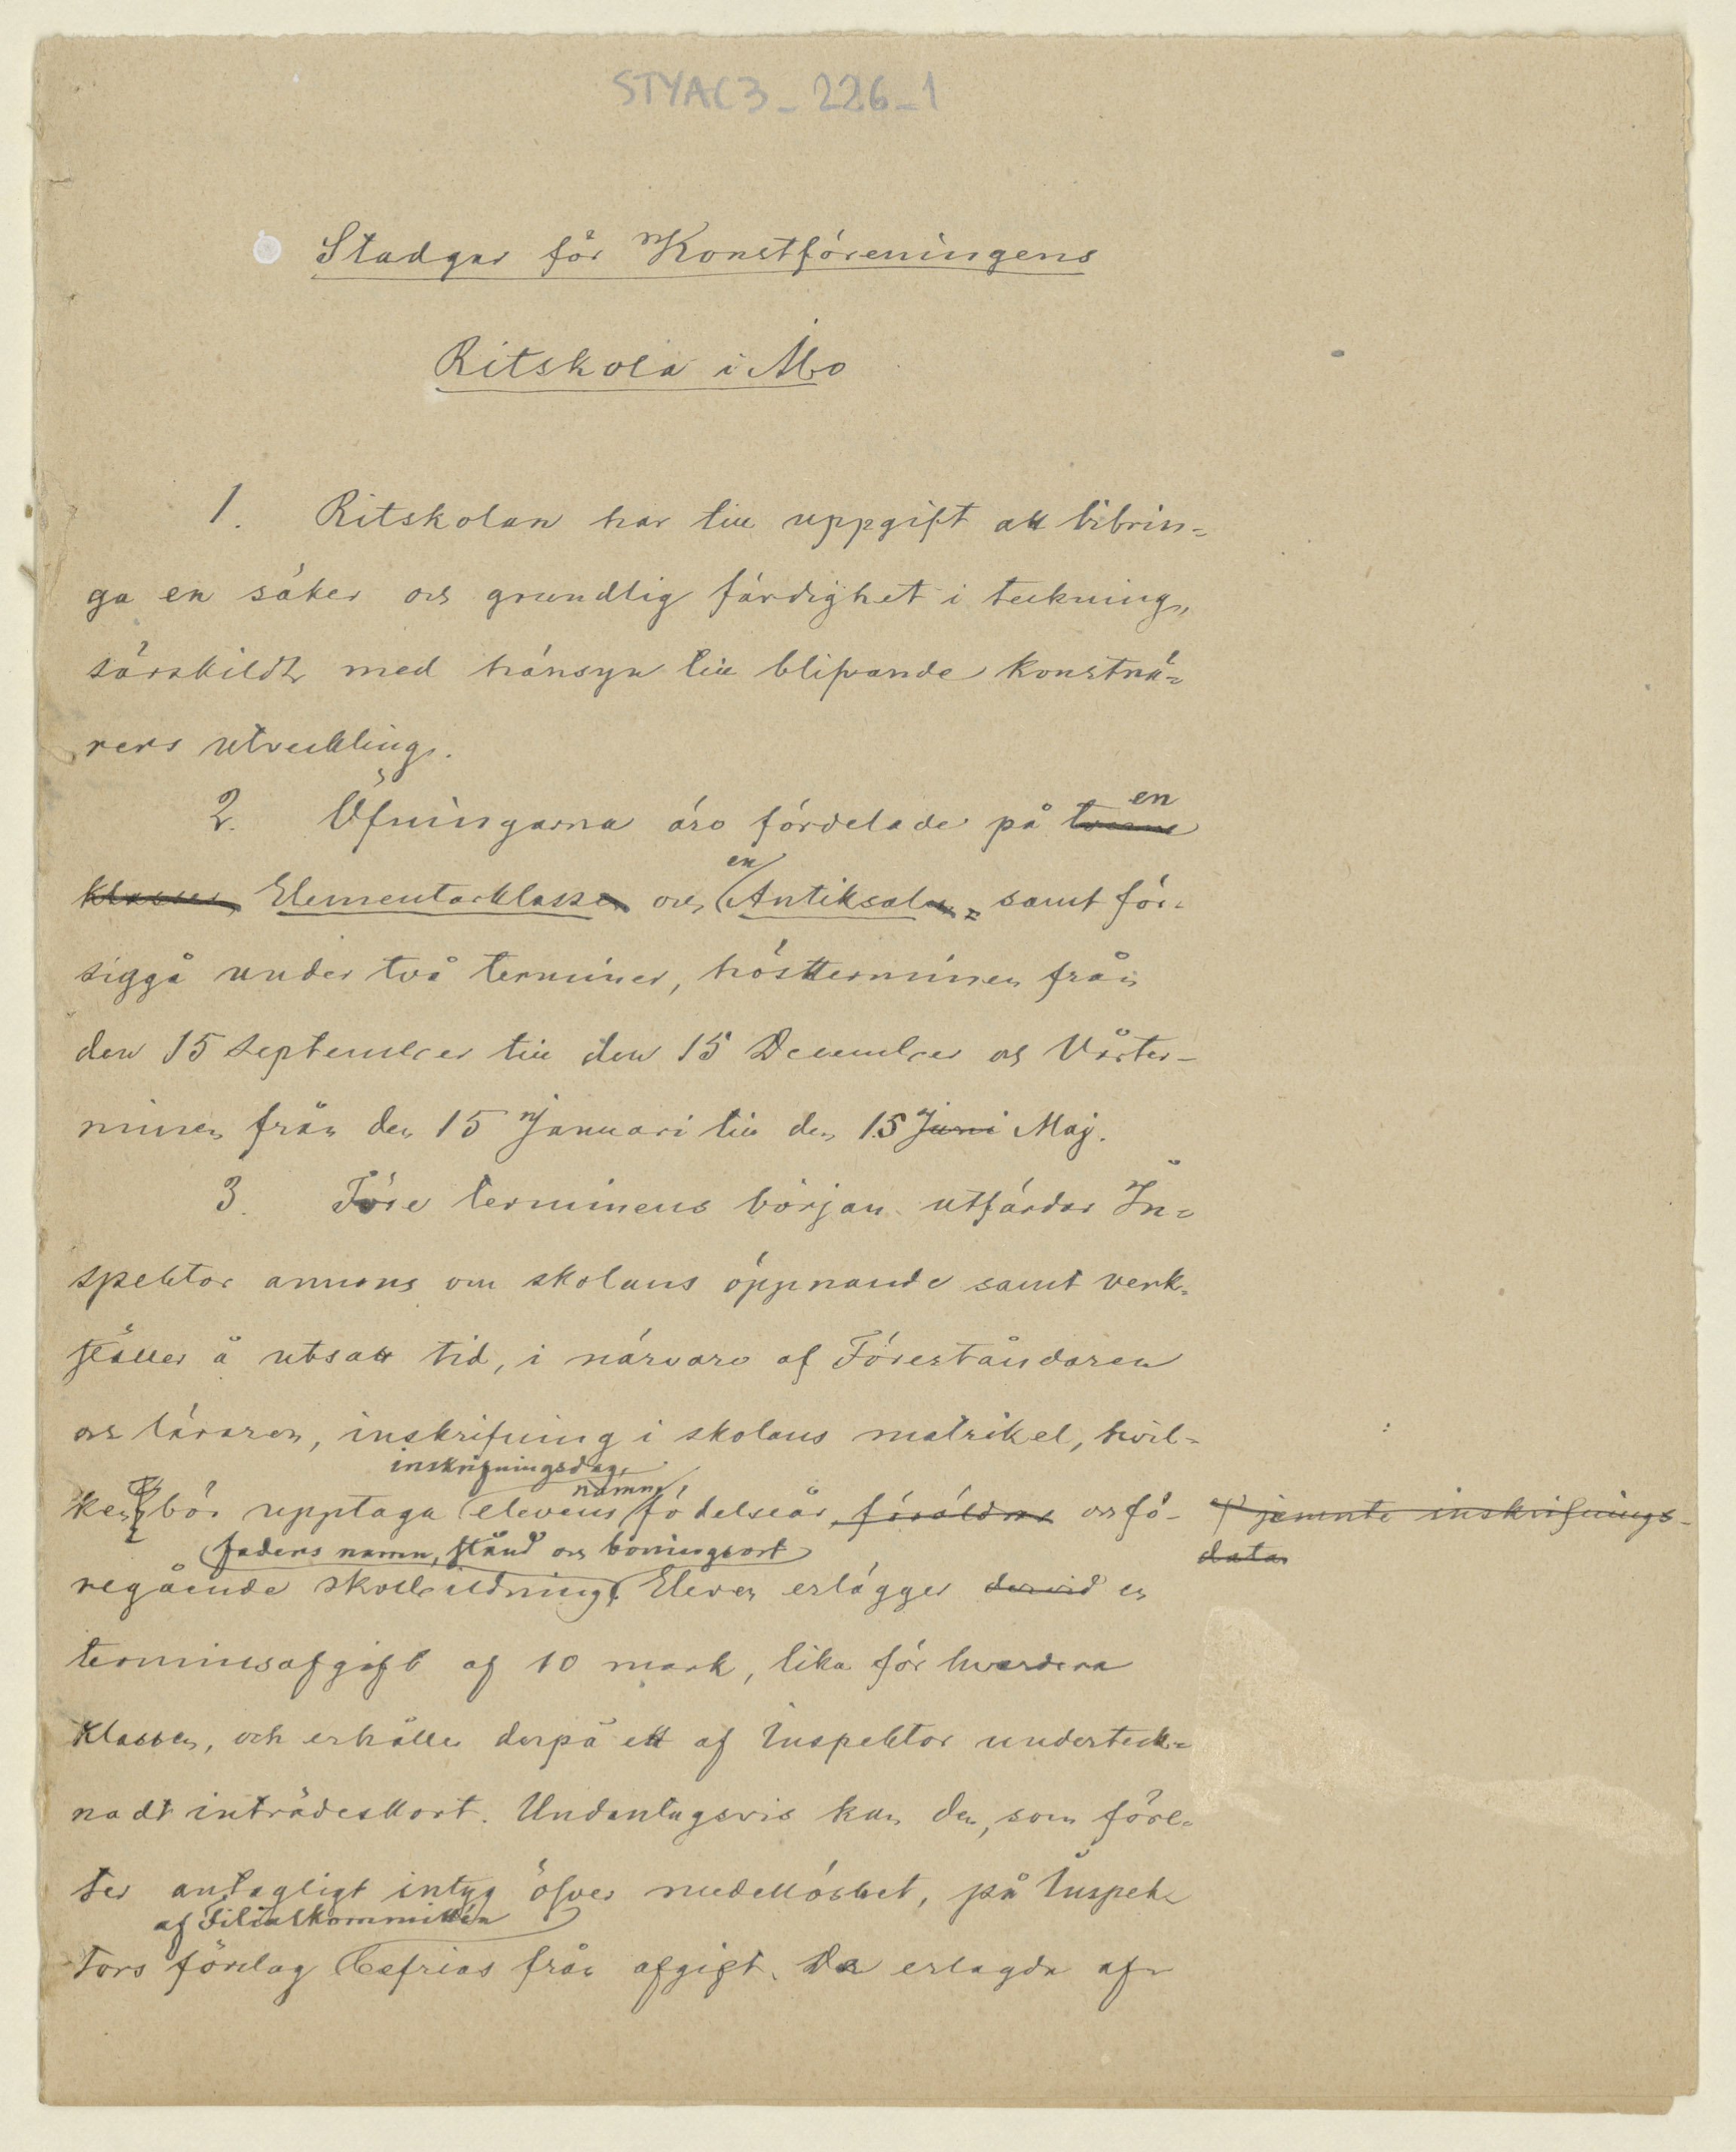 STYAC3_226_1
Stadgar för Konstföreningens
Ritskola i Åbo
1. Ritskolan har till uppgift att bibrin=
ga en säker och grundlig färdighet i teckning,
särskildt med hänsyn till blifvande konstnä=
rers utveckling.
en
2. Öfningarna äro fördelade på tvenne
en
klasser, Elementarklassen och Antiksalen, samt för=
siggå under två terminer, höstterminen från
den 15 September till den 15 December och Vårter-
minen från den 15 Januari till den 15 Juni Maj.
3. Före terminens början utfärdar In=
spektor annons om skolans öppnande samt verk=
ställer å utsatt tid, i närvaro af Föreståndaren
och läraren, inskrifning i skolans matrikel, hvil=
inskrifningsdag,
namn,
ken bör upptaga elevens födelseår, föräldrar och fö-
jemnte inskrifnings-
data
faders namn, stånd och boningsort
regående skolbildning. Eleven erlägger dervid en
terminsafgift af 10 mark, lika för hvardera
klassen, och erhåller derpå ett af Inspektor underteck=
nadt inträdeskort. Undantagsvis kan den, som före=
ter antagligt intyg öfver medellöshet, på Inspek
af Filialkommittén
tors förslag befrias från afgift. De erlagda af-